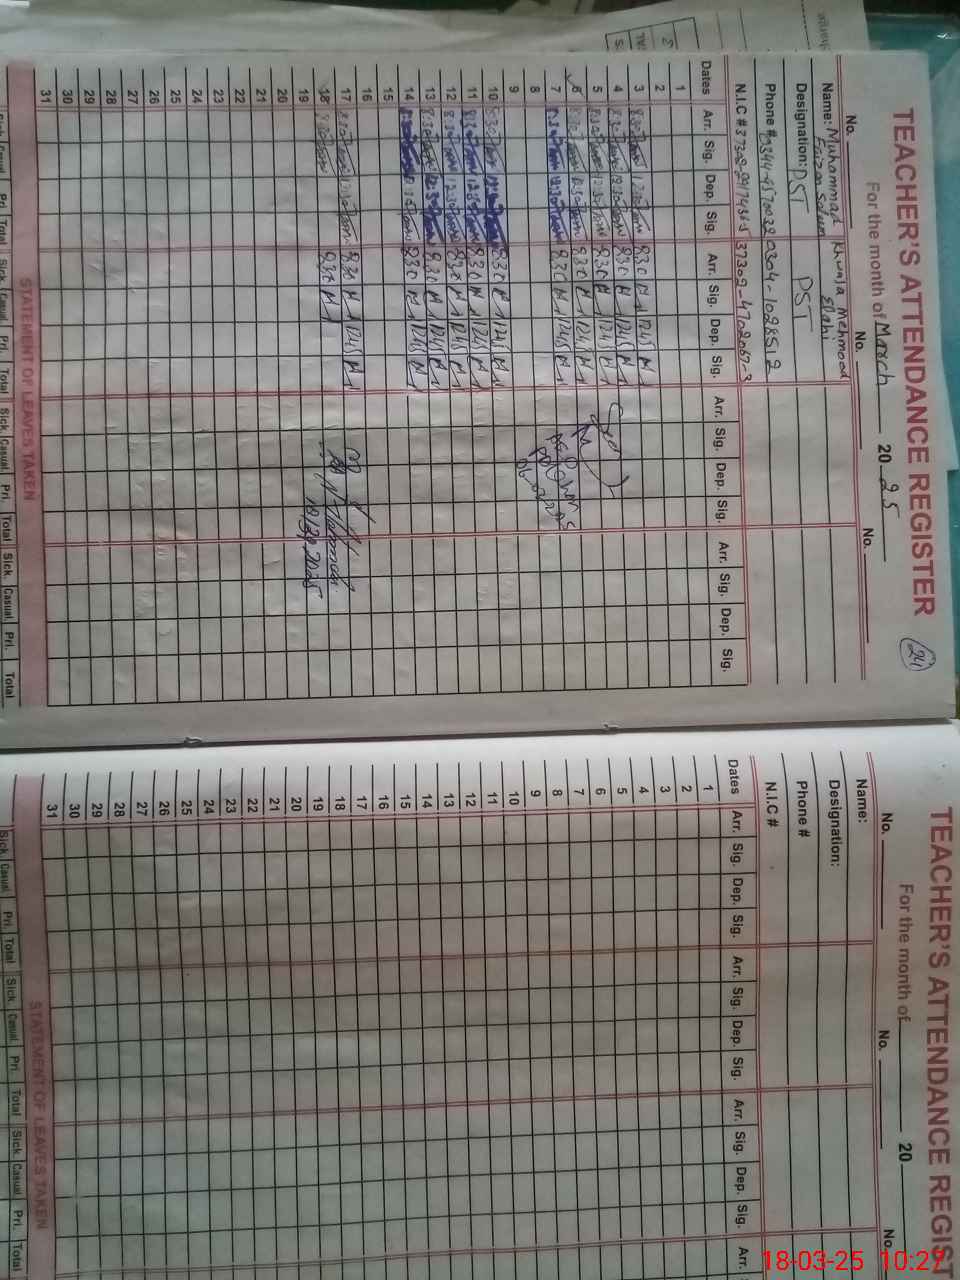 TEACHER'S ATTENDANCE REGISTER
24
For the month of March 20 25
No. No. No.
Name: Muhammad Faizan Saleem Khwaja Mehmood Elahi
Designation: PST PST
Phone # 0304-1028512
N.I.C # 37302-4702067-3
Dates Arr. Sig. Dep. Sig. Arr. Sig. Dep. Sig. Arr. Sig. Dep. Sig. Arr. Sig. Dep. Sig.
1
2
3 8:30 12:30 8:30 12:45
4 8:30 12:30 8:30 12:45
5 8:30 12:30 8:30 12:45
6 8:30 12:30 8:30 12:45
7 8:30 12:30 8:30 12:45
8
9
10 8:30 12:30 8:30 12:45
11 8:30 12:30 8:30 12:45
12 8:30 12:30 8:30 12:45
13 8:30 12:30 8:30 12:45
14 8:30 12:30 8:30 12:45
15
16
17 8:30 12:30 8:30 12:45
18 8:30 8:30
18/3/2025
19
20
21
22
23
24
25
26
27
28
29
30
31
STATEMENT OF LEAVES TAKEN
Sick. Casual Pri. Total Sick. Casual Pri. Total Sick. Casual Pri. Total Sick. Casual Pri. Total
TEACHER'S ATTENDANCE REGIST
For the month of 20
No. No. No.
Name:
Designation:
Phone #
N.I.C #
Dates Arr. Sig. Dep. Sig. Arr. Sig. Dep. Sig. Arr. Sig. Dep. Sig. Arr.
1
2
3
4
5
6
7
8
9
10
11
12
13
14
15
16
17
18
19
20
21
22
23
24
25
26
27
28
29
30
31
STATEMENT OF LEAVES TAKEN
Sick. Casual Pri. Total Sick. Casual Pri. Total Sick. Casual Pri. Total
18-03-25 10:27